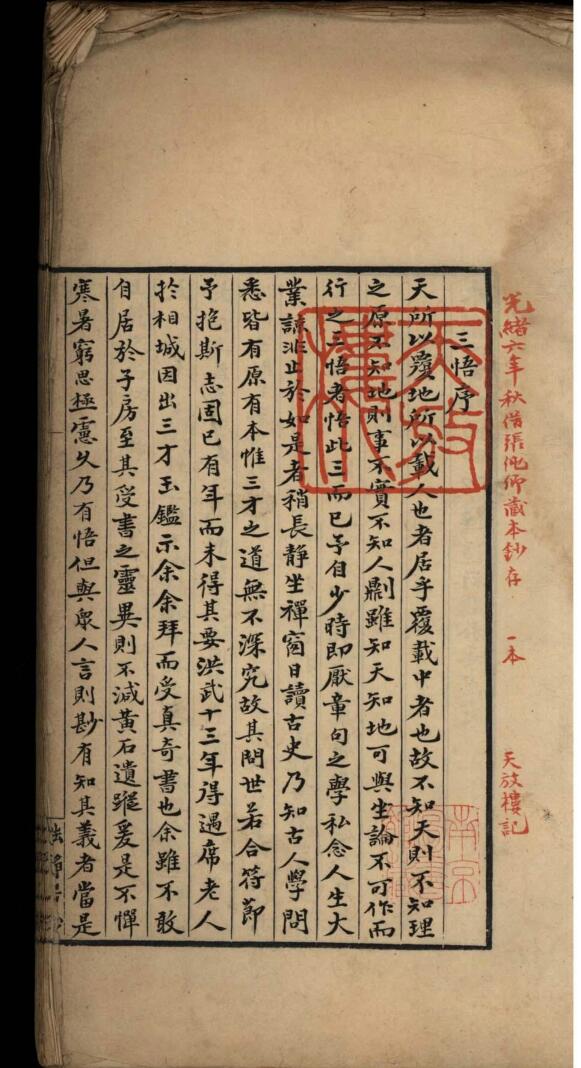 光緒六年秋借張藏本鈔存 一本 天放樓記
三悟序
天所以覆地所以載人也者居乎覆載中者也故不知天則不知理
之原不知地則事不實不知人𠟭雖知天知地可與坐論不可作而
行之三悟者悟此三而已予自少時即厭章句之學私念人生大
業諒非止於如是者稍長靜坐禪窗日讀古史乃知古人學問
悉皆有原有本惟三才之道無不深究故其問世若合符節
予抱斯志固已有年而未得其要洪武十三年得遇席老人
於相城因出三才玉鑑示余余拜而受真奇書也余雖不敢
自居於子房至其受書之靈異則不減黃石遺蹤爰是不憚
寒暑窮思極慮久乃有悟但與眾人言則尠有知其義者當是
天放
南京